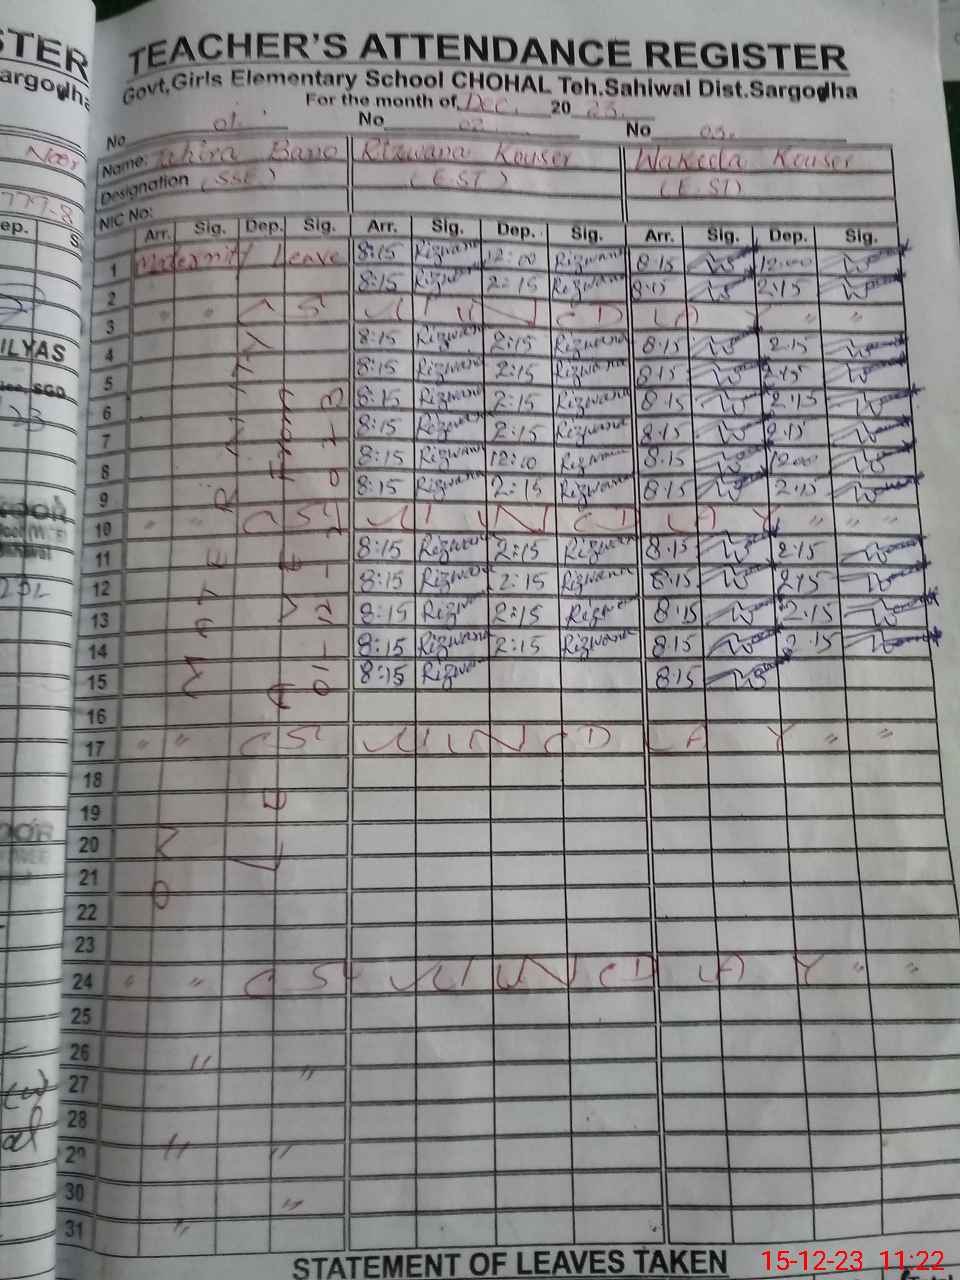 STER
Sargodha
Noor
777-8
ep.
S
ILYAS
TEACHER'S ATTENDANCE REGISTER
Govt,Girls Elementary School CHOHAL Teh.Sahiwal Dist.Sargodha
For the month of Dec. 20 23.
No 01. No 02. No 03.
Name: Tahira Bano Rizwana Kouser Wakeela Kouser
Designation (SSE) (E.ST) (E.ST)
NIC No:
Arr. Sig. Dep. Sig. Arr. Sig. Dep. Sig. Arr. Sig. Dep. Sig.
1 Maternity Leave 8:15 Rizwana 12:00 Rizwana 8:15 12:00
2 8:15 Rizwana 2:15 Rizwana 8:15 2:15
3 " " S U N D A Y " "
4 8:15 Rizwana 2:15 Rizwana 8:15 2:15
5 8:15 Rizwana 2:15 Rizwana 8:15 2:15
6 8:15 Rizwana 2:15 Rizwana 8:15 2:15
7 8:15 Rizwana 2:15 Rizwana 8:15 2:15
8 8:15 Rizwana 12:00 Rizwana 8:15 12:00
9 8:15 Rizwana 2:15 Rizwana 8:15 2:15
10 " " S U N D A Y " " "
11 8:15 Rizwana 2:15 Rizwana 8:15 2:15
12 8:15 Rizwana 2:15 Rizwana 8:15 2:15
13 8:15 Rizwana 2:15 Rizwana 8:15 2:15
14 8:15 Rizwana 2:15 Rizwana 8:15 2:15
15 8:15 Rizwana 8:15
16
17 " " S U N D A Y " "
18
19
20
21
22
23
24 " " S U N D A Y " "
25
26 "
27 "
28
29 " "
30 "
31 "
MATERNITY
LEAVE
From
STATEMENT OF LEAVES TAKEN
15-12-23 11:22